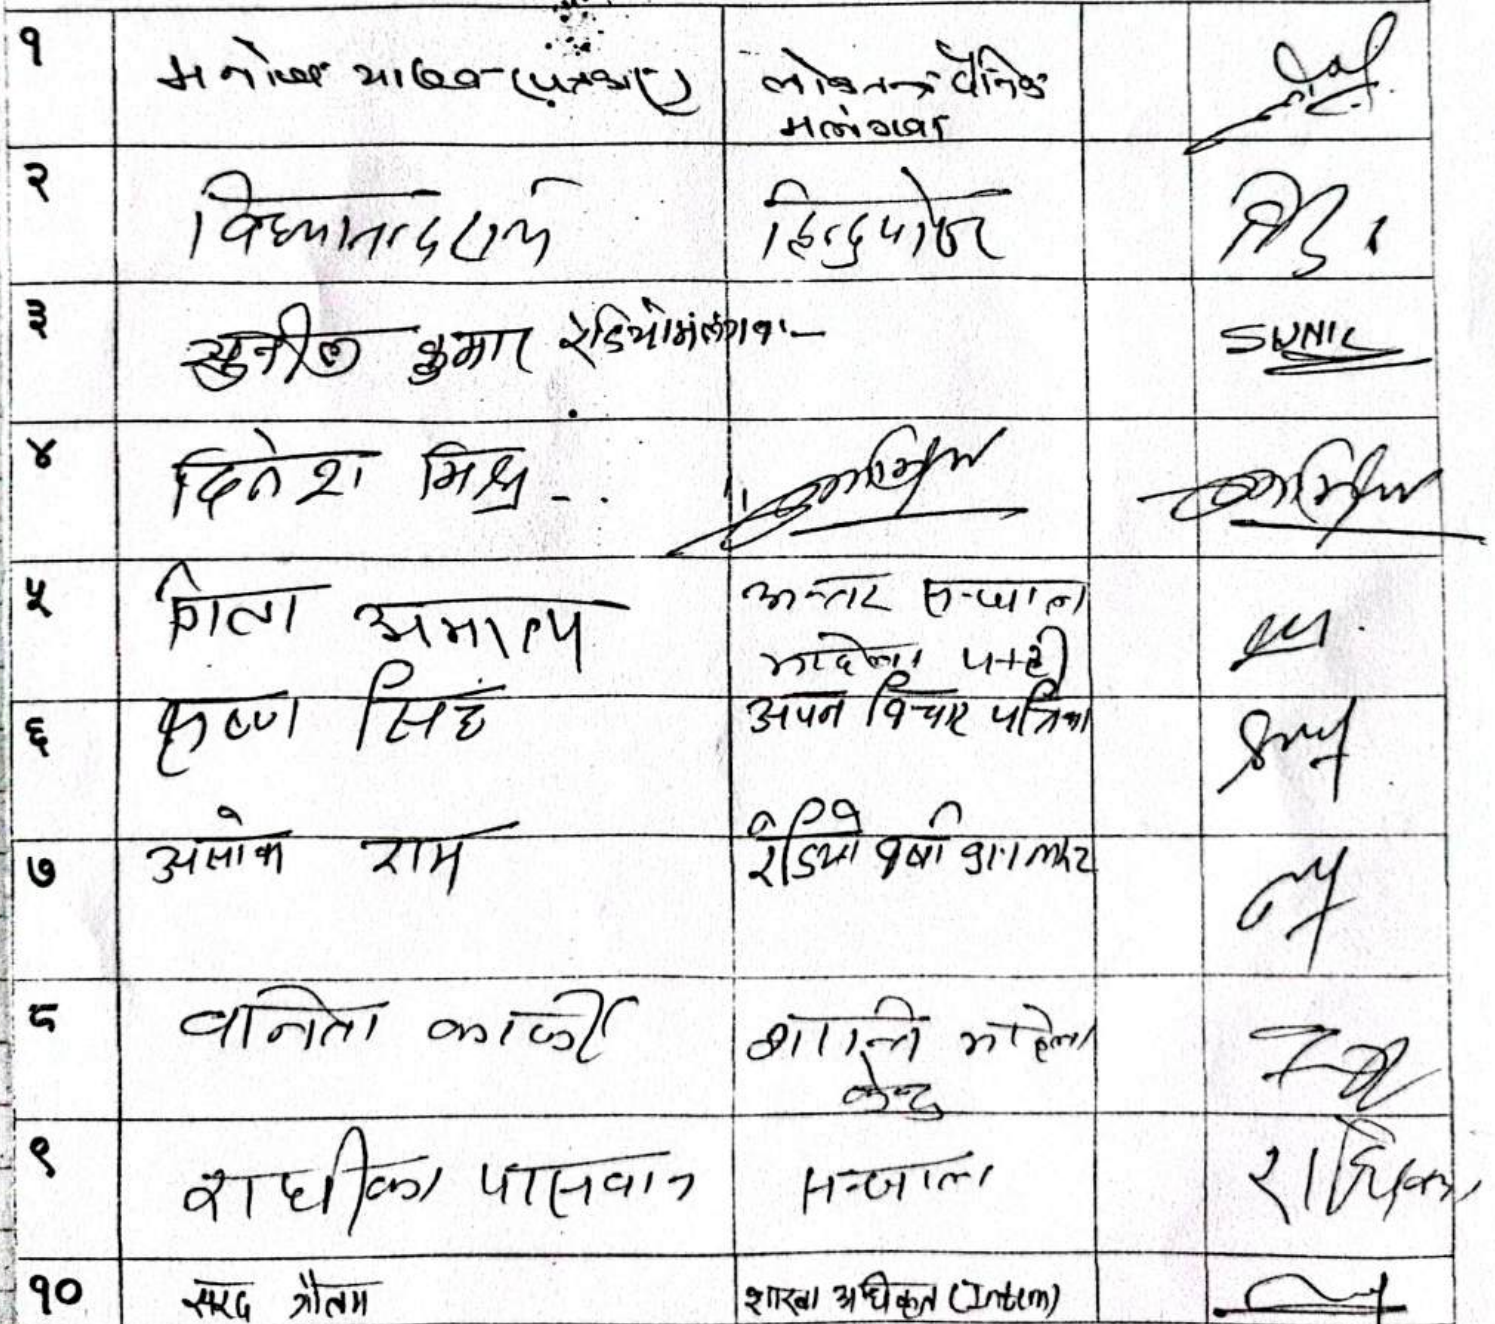 १ मनोज यादव (पत्रकार) लोकतन्त्र दैनिक
मलंगवा
२ विद्यानन्द राय हिन्दु
३ सुनील कुमार रेडियो मलंगवा SUNIL
४ दिनेश मिश्र
५ गिता अमात्य अन्तर सञ्जाल
६ कृष्ण सिंह अपन विचार पत्रिका
७ असोक राम रेडियो
८ वनिता कार्की शान्ति महिला
केन्द्र
९ राधीका पासवान सन्जाल राधिका
१० सरद गौतम शाखा अधिकृत (Interim)